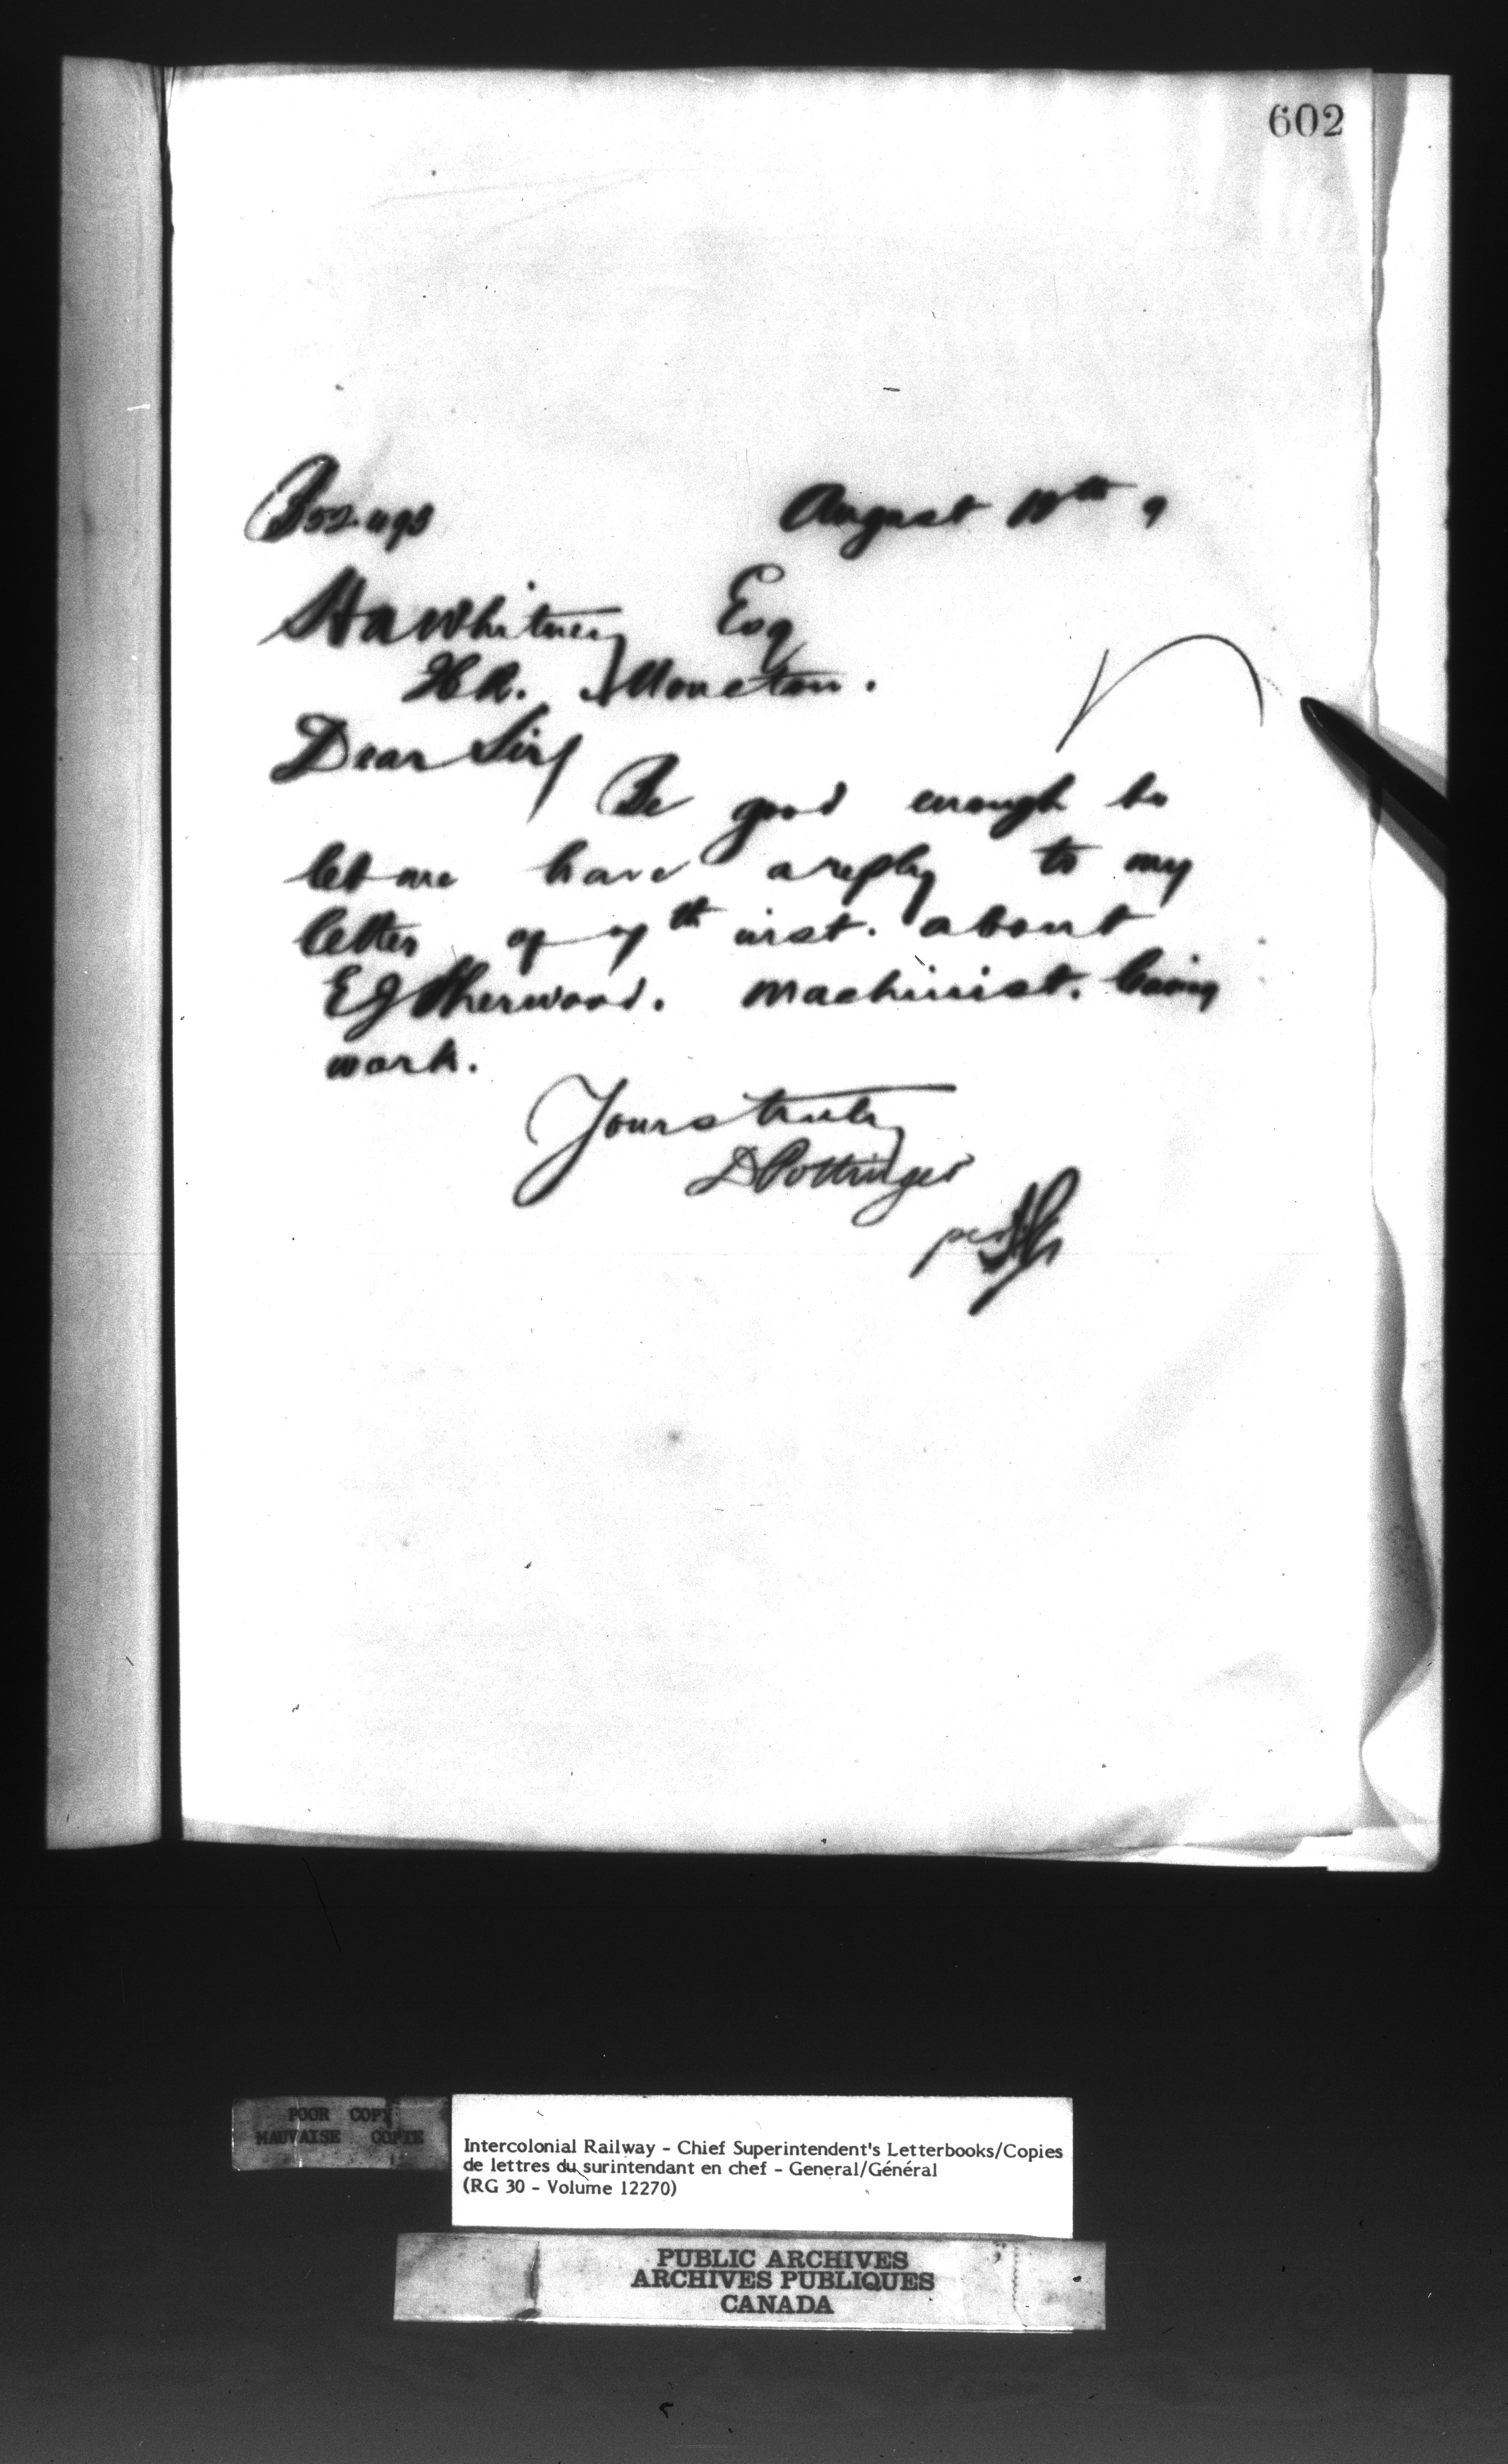 602
August 18th 9
HA Whitney Esq
Moncton.
Dear Sir/
Be good enough to
let me have a reply to my
letter of 7th inst. about
EJ Sherwood. machinist.
work.
Yours truly
D Pottinger
per
POOR COPY
MAUVAISE COPIE
Intercolonial Railway - Chief Superintendent's Letterbooks/Copies
de lettres du surintendant en chef - General/Général
(RG 30 - Volume 12270)
PUBLIC ARCHIVES
ARCHIVES PUBLIQUES
CANADA